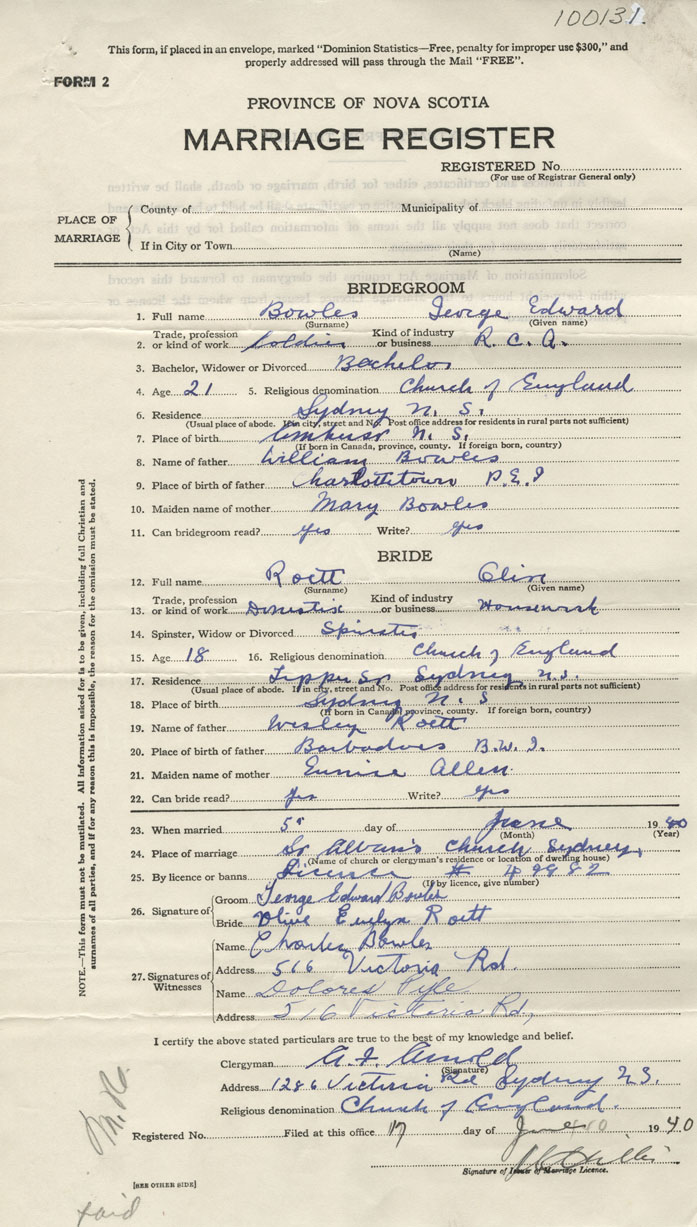 100131.
This form, if placed in an envelope, marked "Dominion Statistics—Free, penalty for improper use $300," and
properly addressed will pass through the Mail "FREE".
FORM 2
PROVINCE OF NOVA SCOTIA
MARRIAGE REGISTER
REGISTERED No.
(For use of Registrar General only)
PLACE OF MARRIAGE
County of Municipality of
If in City or Town
(Name)
BRIDEGROOM
1. Full name Bowles George Edward
(Surname) (Given name)
2. Trade, profession or kind of work Soldier Kind of industry or business R. C. A.
3. Bachelor, Widower or Divorced Bachelor
4. Age 21 5. Religious denomination Church of England
6. Residence Sydney N. S.
(Usual place of abode. If in city, street and No. Post office address for residents in rural parts not sufficient)
7. Place of birth Amhurst N. S.
(If born in Canada, province, county. If foreign born, country)
8. Name of father William Bowles
9. Place of birth of father Charlottetown P.E.I
10. Maiden name of mother Mary Bowles
11. Can bridegroom read? yes Write? yes
BRIDE
12. Full name Roett Olive
(Surname) (Given name)
13. Trade, profession or kind of work Domestic Kind of industry or business Housework
14. Spinster, Widow or Divorced Spinster
15. Age 18 16. Religious denomination Church of England
17. Residence Tupper St Sydney N.S.
(Usual place of abode. If in city, street and No. Post office address for residents in rural parts not sufficient)
18. Place of birth Sydney N. S
(If born in Canada, province, county. If foreign born, country)
19. Name of father Wesley Roett
20. Place of birth of father Barbadoes B.W.I.
21. Maiden name of mother Eunice Allen
22. Can bride read? yes Write? yes
23. When married 5th day of June 1940
(Month) (Year)
24. Place of marriage St Alban's Church Sydney,
(Name of church or clergyman's residence or location of dwelling house)
25. By licence or banns License # 49982
(If by licence, give number)
26. Signature of
Groom George Edward Bowles
Bride Olive Evelyn Roett
27. Signatures of Witnesses
Name Charles Bowles
Address 516 Victoria Rd.
Name Dolores Pyle
Address 516 Victoria Rd,
I certify the above stated particulars are true to the best of my knowledge and belief.
Clergyman A. F. Arnold
(Signature)
Address 1286 Victoria Rd Sydney N.S.
Religious denomination Church of England.
Registered No. Filed at this office 17 day of June 1940
Signature of Issuer of Marriage Licence.
[SEE OTHER SIDE]
paid
NOTE.—This form must not be mutilated. All information asked for is to be given, including full Christian and
surnames of all parties, and if for any reason this is impossible, the reason for the omission must be stated.